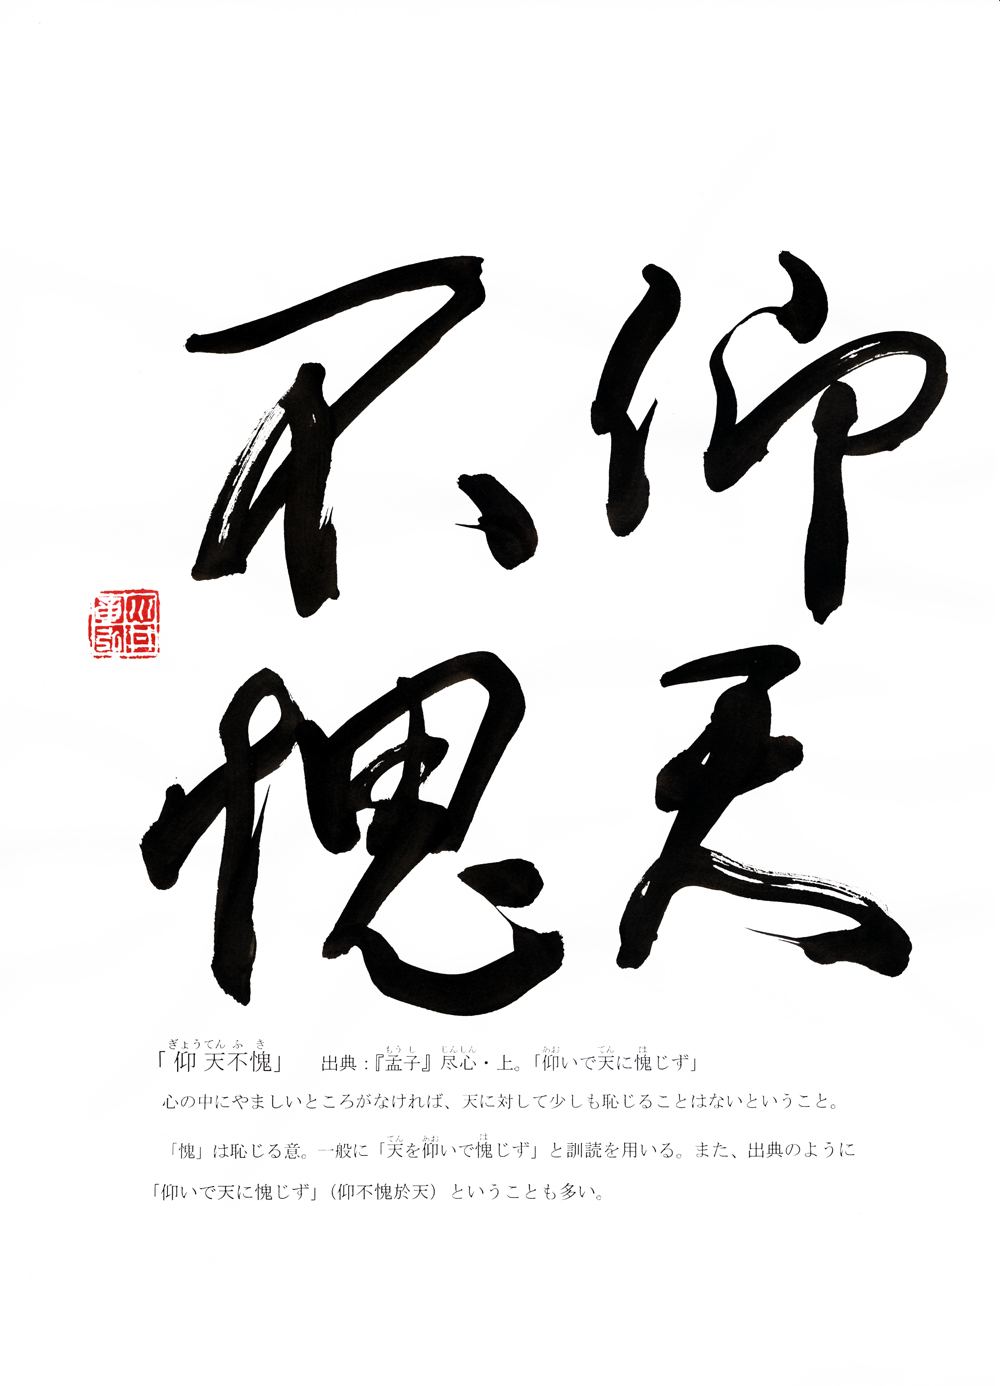 仰天
不愧
「仰天不愧」　出典：『孟子』尽心・上。「仰いで天に愧じず」
ぎょうてん ふ き　もう し　じんしん　あお　てん　は
心の中にやましいところがなければ、天に対して少しも恥じることはないということ。
「愧」は恥じる意。一般に「天を仰いで愧じず」と訓読を用いる。また、出典のように
てん　あお　は
「仰いで天に愧じず」（仰不愧於天）ということも多い。